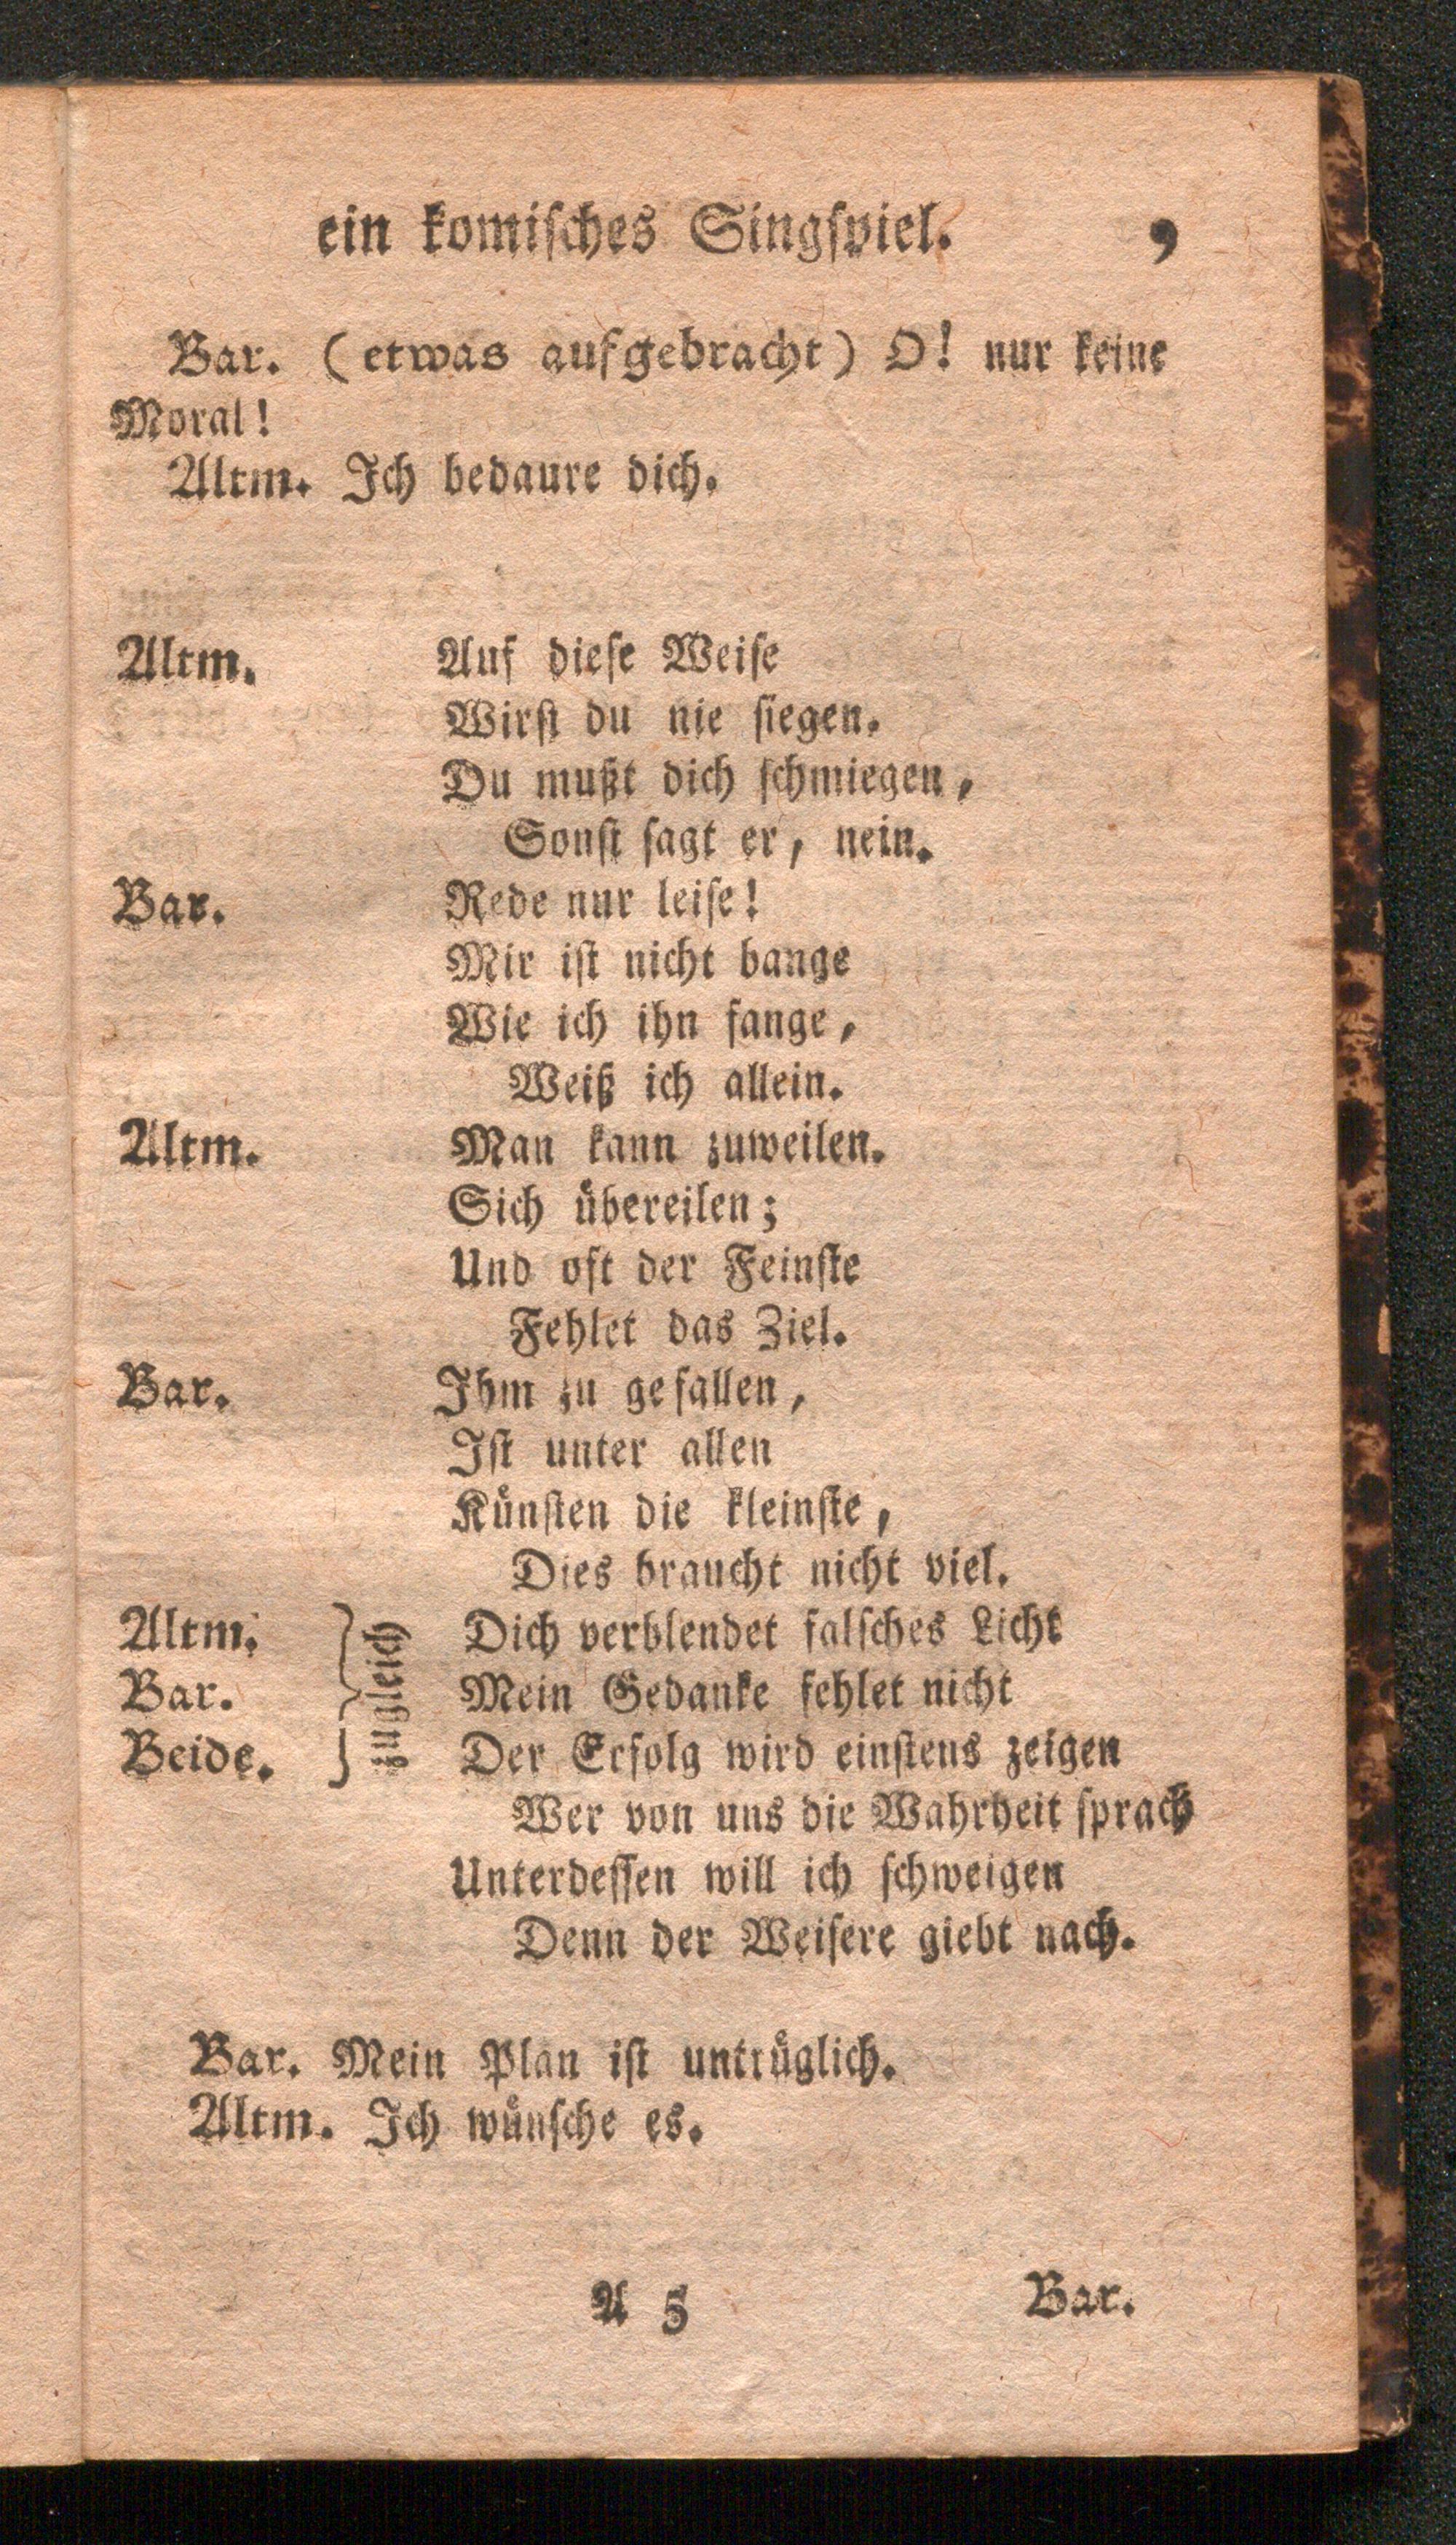 ein komiſches Singſpiel. 9
Bar. (etwas aufgebracht) O! nur keine
Moral!
Altm. Ich bedaure dich.
Altm. Auf dieſe Weiſe
Wirſt du nie ſiegen.
Du mußt dich ſchmiegen,
Sonſt ſagt er, nein.
Bar. Rede nur leiſe!
Mir iſt nicht bange
Wie ich ihn fange,
Weiß ich allein.
Altm. Man kann zuweilen.
Sich uͤbereilen;
Und oft der Feinſte
Fehlet das Ziel.
Bar. Ihm zu gefallen,
Iſt unter allen
Kuͤnſten die kleinſte,
Dies braucht nicht viel.
Altm. Dich verblendet falſches Licht
Bar. zugleich Mein Gedanke fehlet nicht
Beide. Der Erfolg wird einſtens zeigen
Wer von uns die Wahrheit ſprach
Unterdeſſen will ich ſchweigen
Denn der Weiſere giebt nach.
Bar. Mein Plan iſt untruͤglich.
Altm. Ich wuͤnſche es.
A 5 Bar.